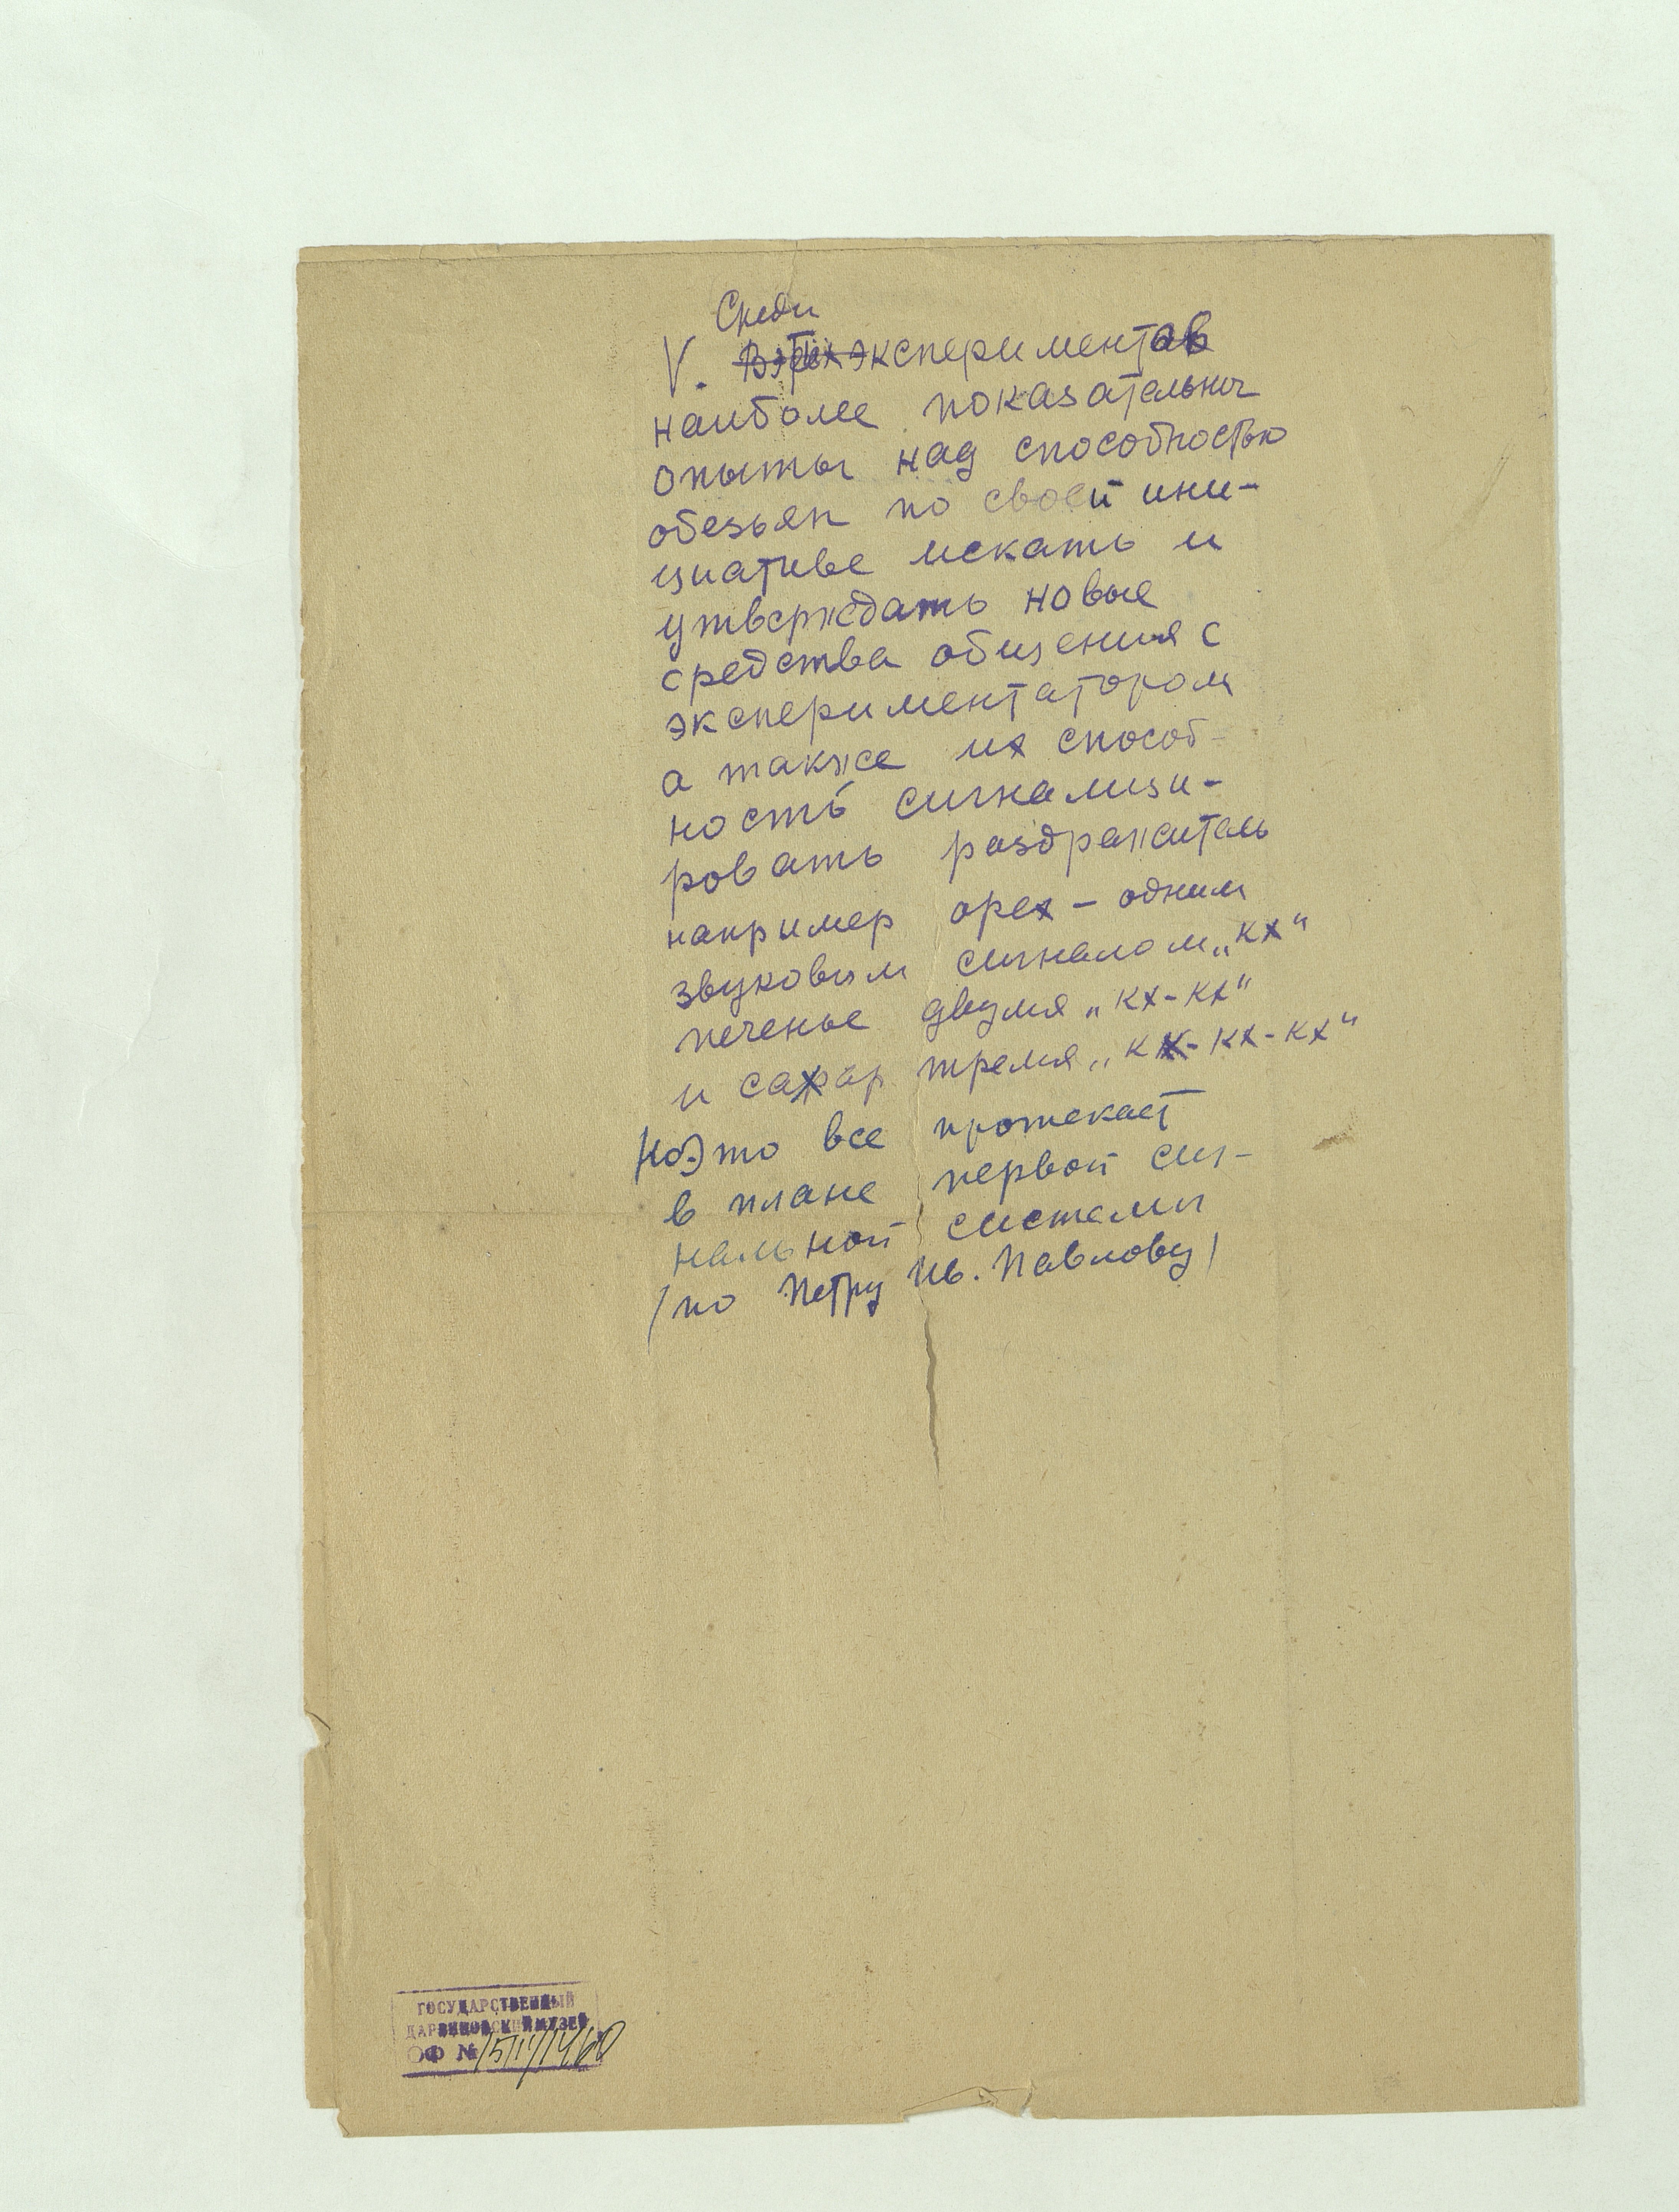 Среди
V. экспериментов
наиболее показательны
опыты над способностью
обезьян по своей ини-
циативе искать и
утверждать новые
средства общения с
экспериментатором
а также их способ-
ность сигнализи-
ровать раздражитель
например орех - одним
звуковым сигналом „кх“
печенье двумя „кх-кх“
и сахар тремя „кх-кх-кх“
Но это все протекает
в плане первой сиг-
нальной системы
(по Петру Ив. Павлову)
ГОСУДАРСТВЕННЫЙ
ДАРВИНОВСКИЙ МУЗЕЙ
ОФ №